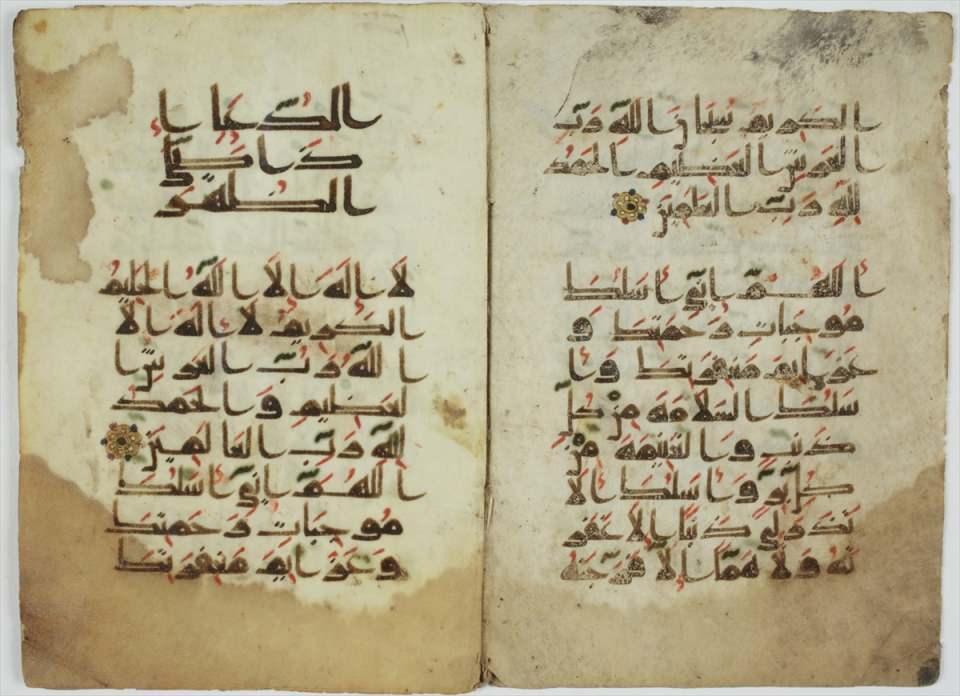 الكريم سبحان الله رب
العرش العظيم الحمد
لله رب العالمين
اللهم إني أسلك
موجبات رحمتك و
عزائم مغفرتك وأ
سلك السلامة من كل
ذنب والغنيمة من
كل بر وأسلك ألا
تدع لي ذنبا إلا غفر
ته ولا هما إلا فرجته
الدعا إ
ذا
لا إله إلا الله الحليم
الكريم لا إله إلا
الله رب العرش ا
لعظيم والحمد
لله رب العالمين
اللهم إني أسلك
موجبات رحمتك
وعزائم مغفرتك